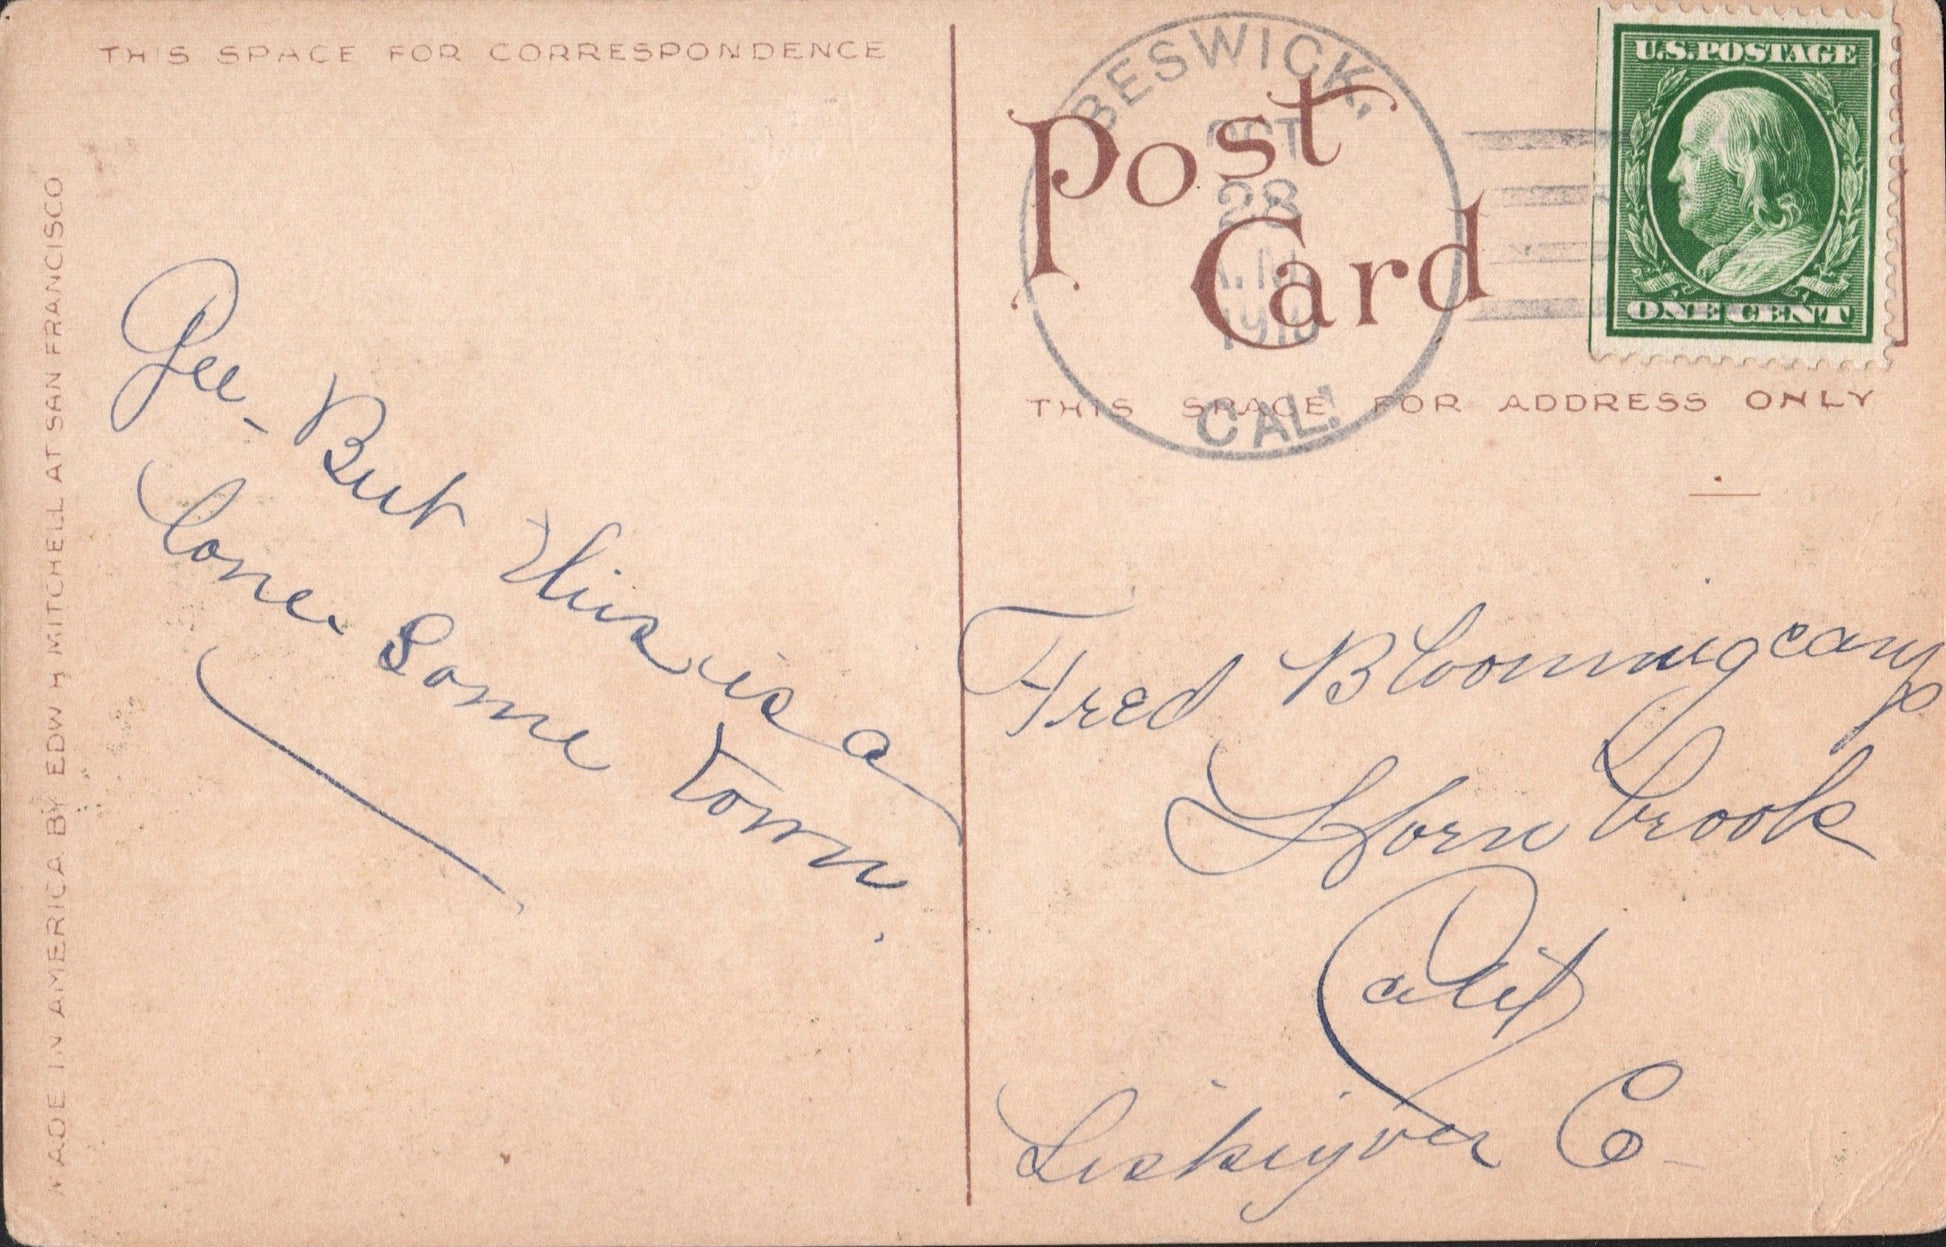 THIS SPACE FOR CORRESPONDENCE
MADE IN AMERICA BY EDW H MITCHELL AT SAN FRANCISCO
Gee - But this is a
Lone Some town.
Post
Card
BESWICK,
OCT
28
A.M.
1910
CAL.
U.S. POSTAGE
ONE CENT
THIS SPACE FOR ADDRESS ONLY
Fred Bloomingcamp
Hornbrook
Calif
Siskiyou Co